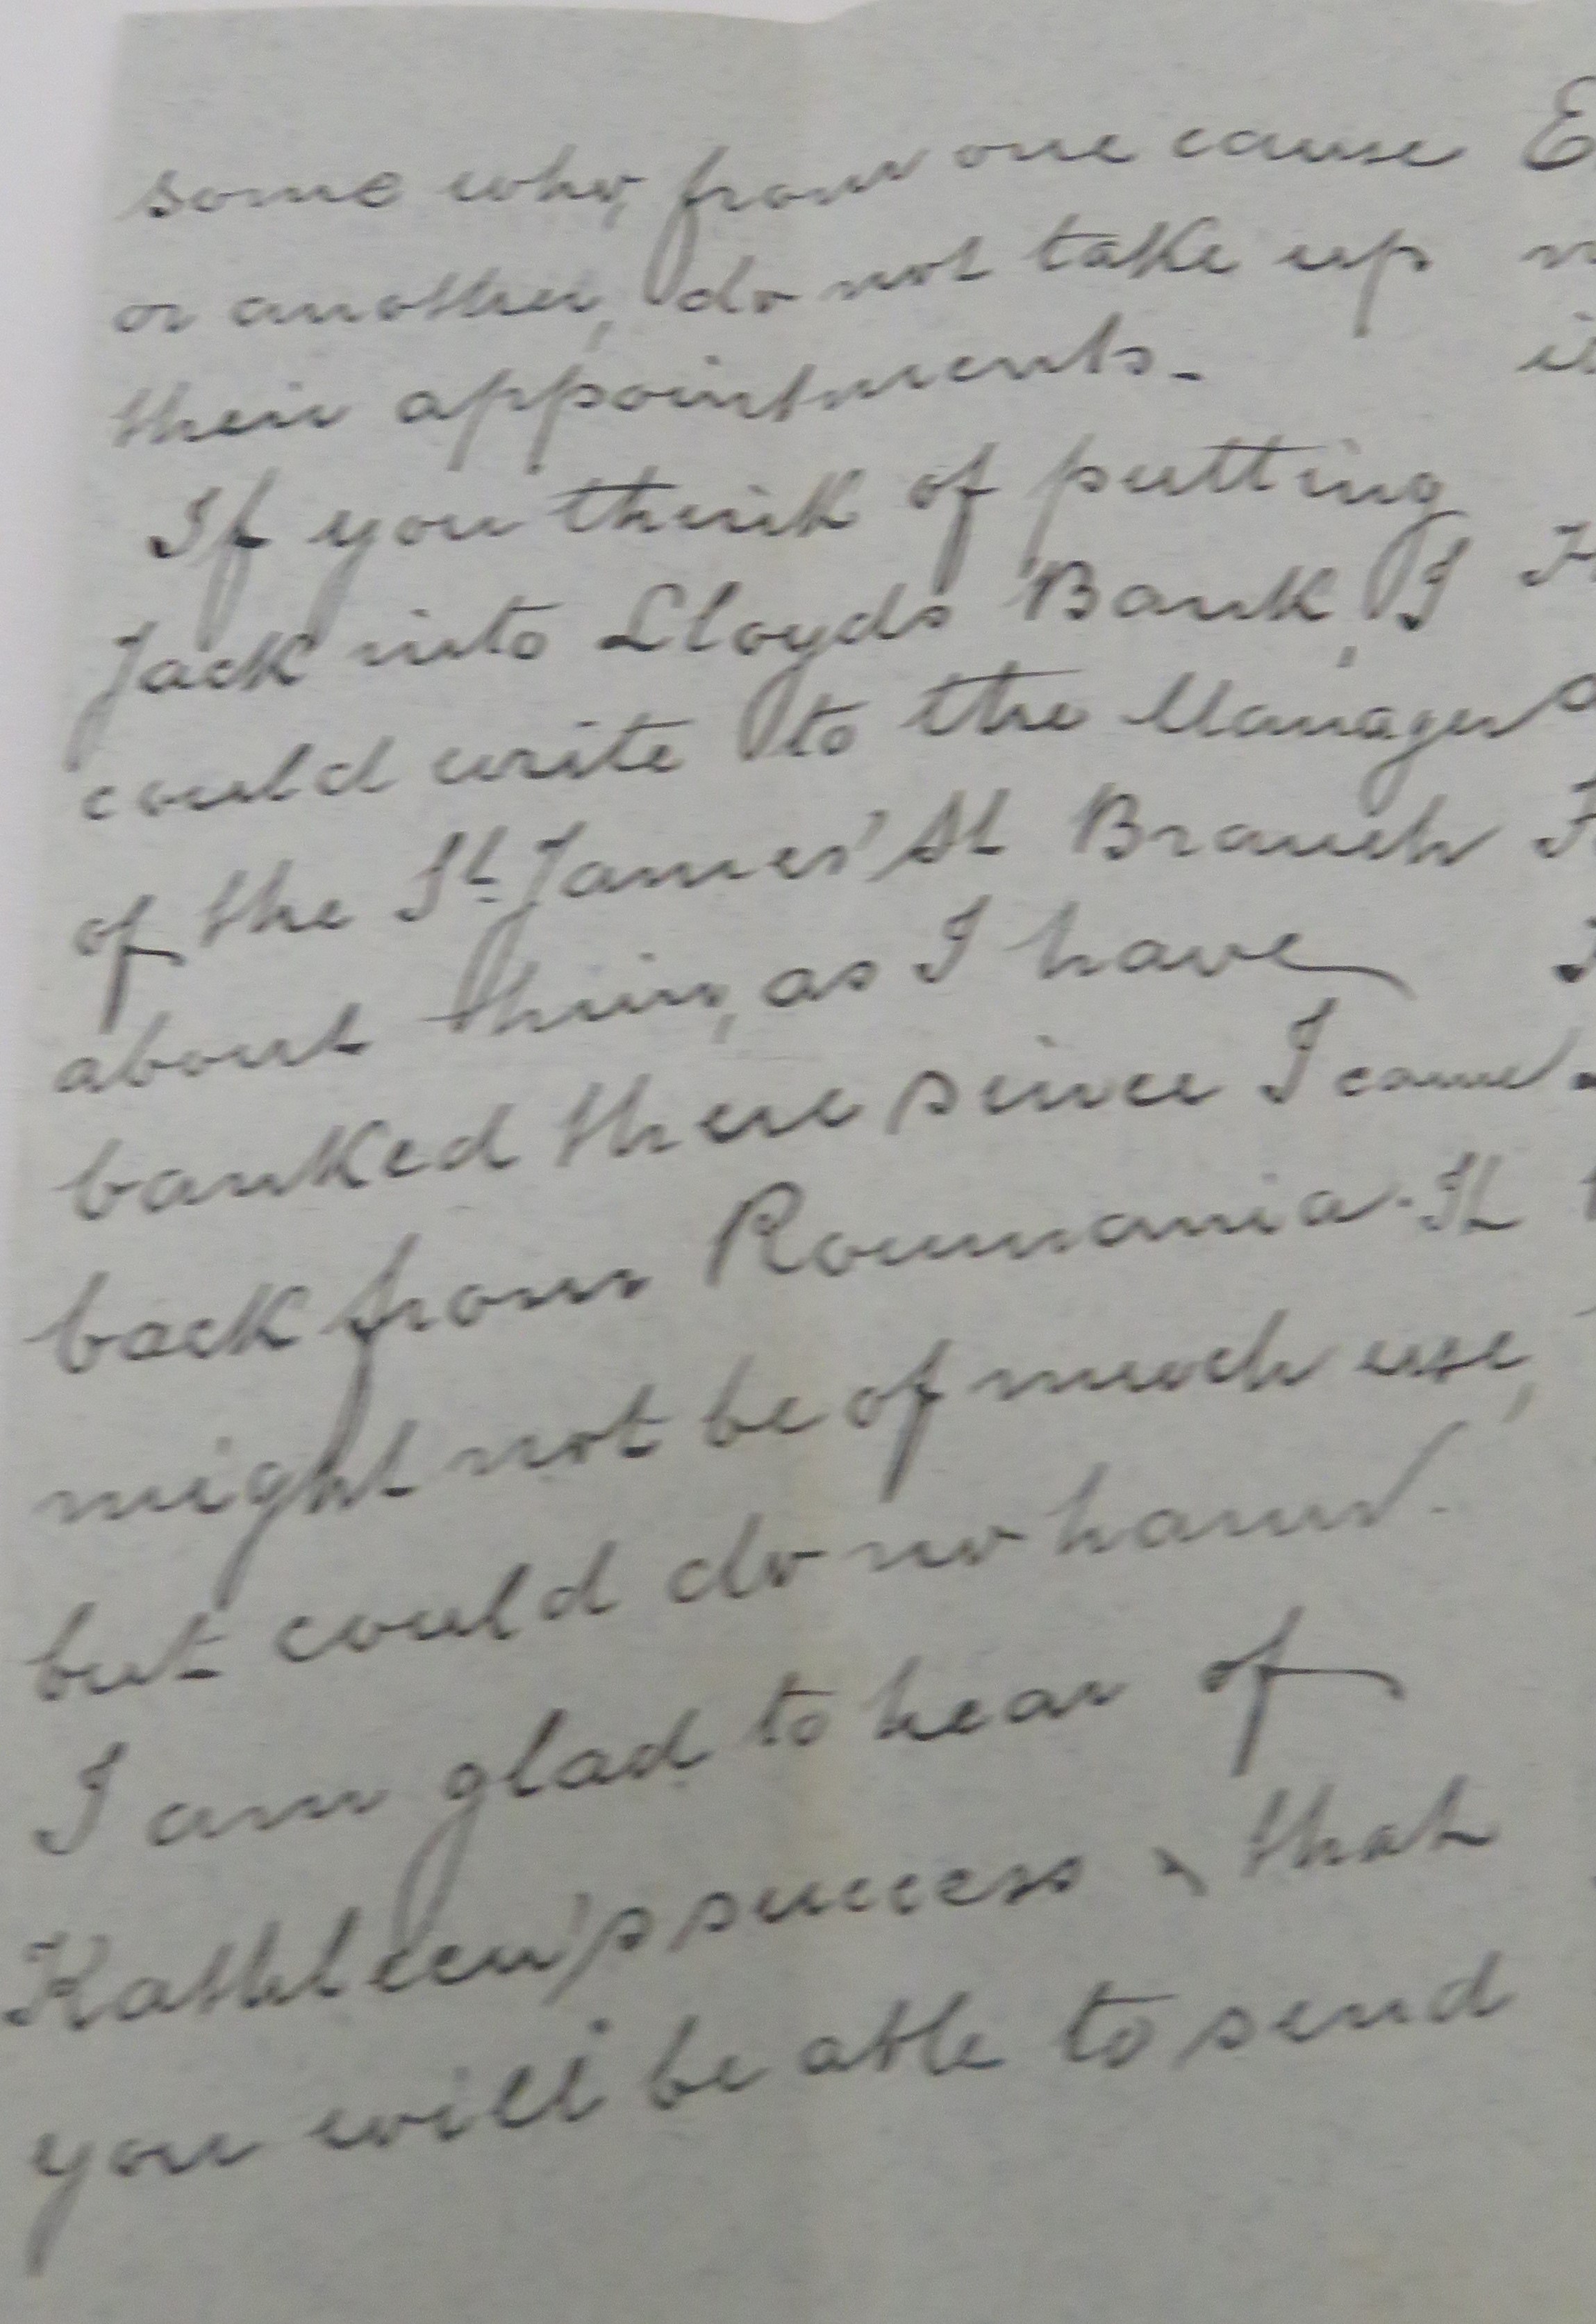 some who, from one cause
or another, do not take up
their appointments.
If you think of putting
Jack into Lloyds Bank, I
could write to the Manager
of the St. James' St Branch
about him, as I have
banked there since I came
back from Roumania. It
might not be of much use,
but could do no harm.
I am glad to hear of
Kathleen's success & that
you will be able to send